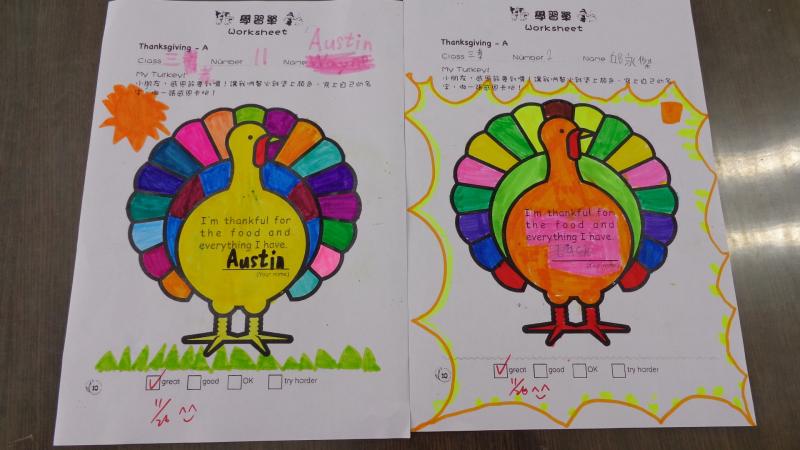 學習單
Worksheet
Thanksgiving - A
Class 三孝 Number 11 Name Austin
My Turkey!
小朋友，感恩節要到囉！讓我們幫火雞塗上顏色，寫上自己的名
字，做一張感恩卡吧！
I'm thankful for
the food and
everything I have.
Austin
(Your name)
great good OK try harder
10
11/26
學習單
Worksheet
Thanksgiving - A
Class 三孝 Number 2 Name
My Turkey!
小朋友，感恩節要到囉！讓我們幫火雞塗上顏色，寫上自己的名
字，做一張感恩卡吧！
I'm thankful for
the food and
everything I have.
(Your name)
great good OK try harder
10
11/26